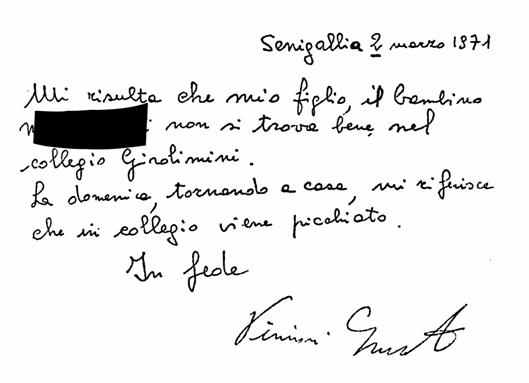 Senigallia 2 marzo 1971
Mi risulta che mio figlio, il bambino
non si trova bene nel
collegio Girolimini.
La domenica, tornando a casa, mi riferisce
che in collegio viene picchiato.
In fede